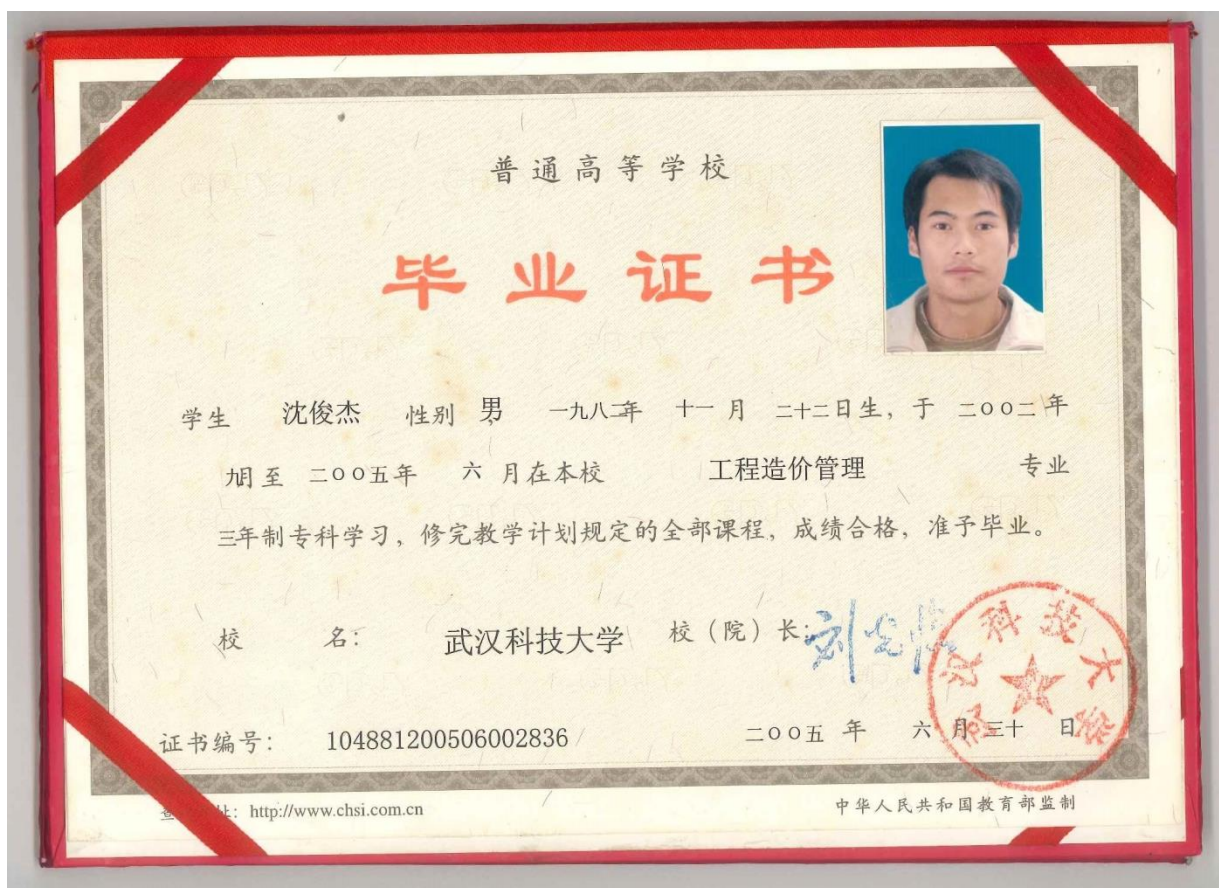 普通高等学校
毕业证书
学生 沈俊杰 性别 男, 一九八二年 十一月 二十二日生,于 二〇〇二年
九月至 二〇〇五年 六月在本校 工程造价管理 专业
三年制专科学习,修完教学计划规定的全部课程,成绩合格,准予毕业。
校 名: 武汉科技大学 校(院)长:
武汉科技大学
证书编号: 104881200506002836 二〇〇五年 六月三十日
址: http://www.chsi.com.cn 中华人民共和国教育部监制